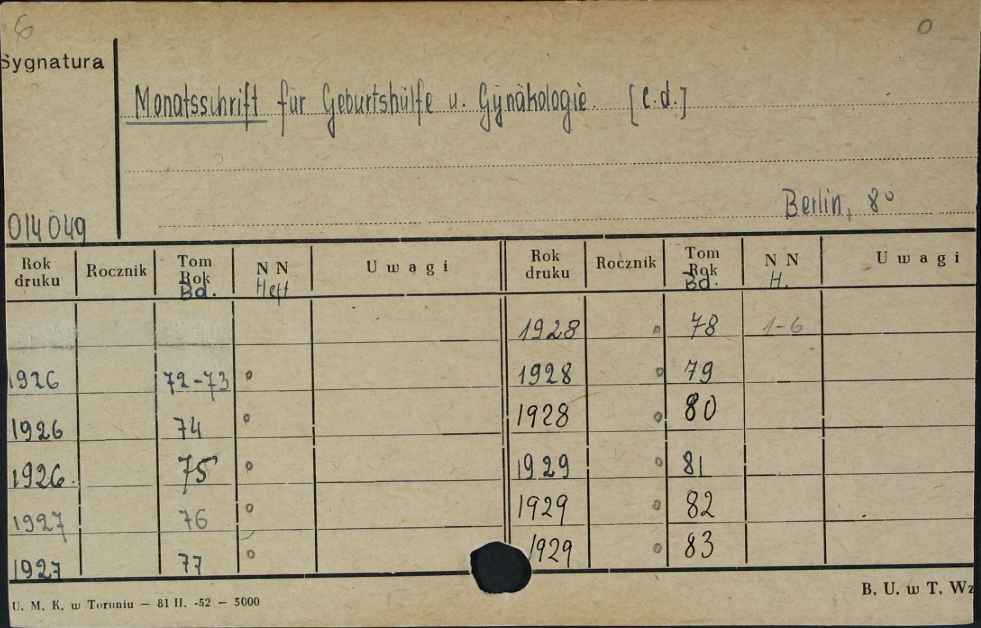 6 0
Sygnatura
Monatsschrift für Geburtshülfe u. Gynäkologie. [c.d.]
Berlin, 8°
014049
Rok druku Rocznik Tom Rok Bd. NN Heft Uwagi Rok druku Rocznik Tom Rok Bd. NN H. Uwagi
1928 78 1-6
1926 72-73 1928 79
1926 74 1928 80
1926. 75 1929 81
1927 76 1929 82
1927 77 1929 83
U. M. K. w Toruniu — 81 II. -52 — 5000
B. U. w T. Wz